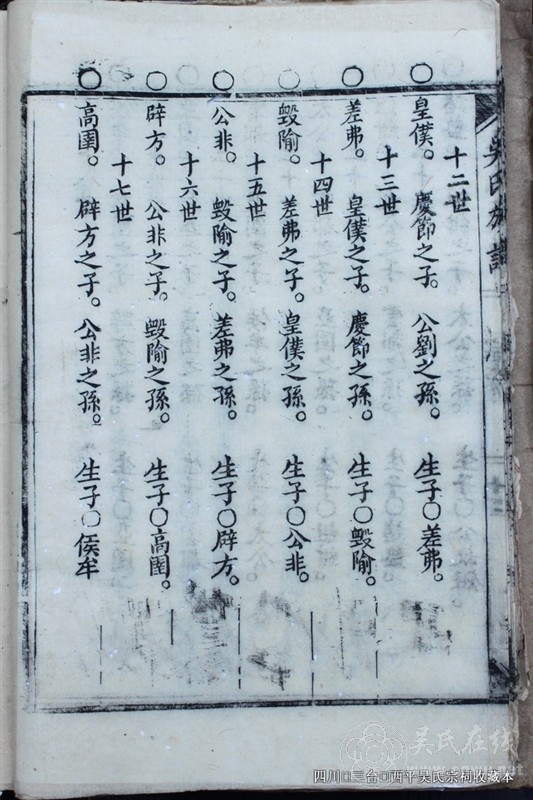 吳氏族譜
十二世
〇皇僕。慶節之子。公劉之孫。生子〇差弗。
十三世
〇差弗。皇僕之子。慶節之孫。生子〇毀隃。
十四世
〇毀隃。差弗之子。皇僕之孫。生子〇公非。
十五世
〇公非。毀隃之子。差弗之孫。生子〇辟方。
十六世
〇辟方。公非之子。毀隃之孫。生子〇高圉。
十七世
〇高圉。辟方之子。公非之孫。生子〇侯牟
吴氏在线
四川□三台□西平吴氏宗祠收藏本